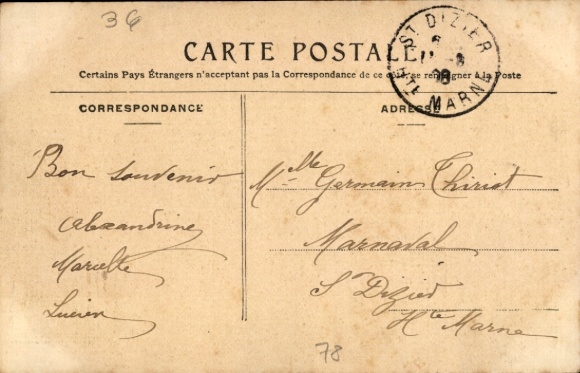 36
CARTE POSTALE
Certains Pays Étrangers n'acceptent pas la Correspondance de ce côté, se renseigner à la Poste
ST DIZIER
HTE MARNE
CORRESPONDANCE
ADRESSE
Bon souvenir
Alexandrine
Marcelle
Lucien
Melle Germain Thiriot
Marnaval
St Dizier
Hte Marne
78